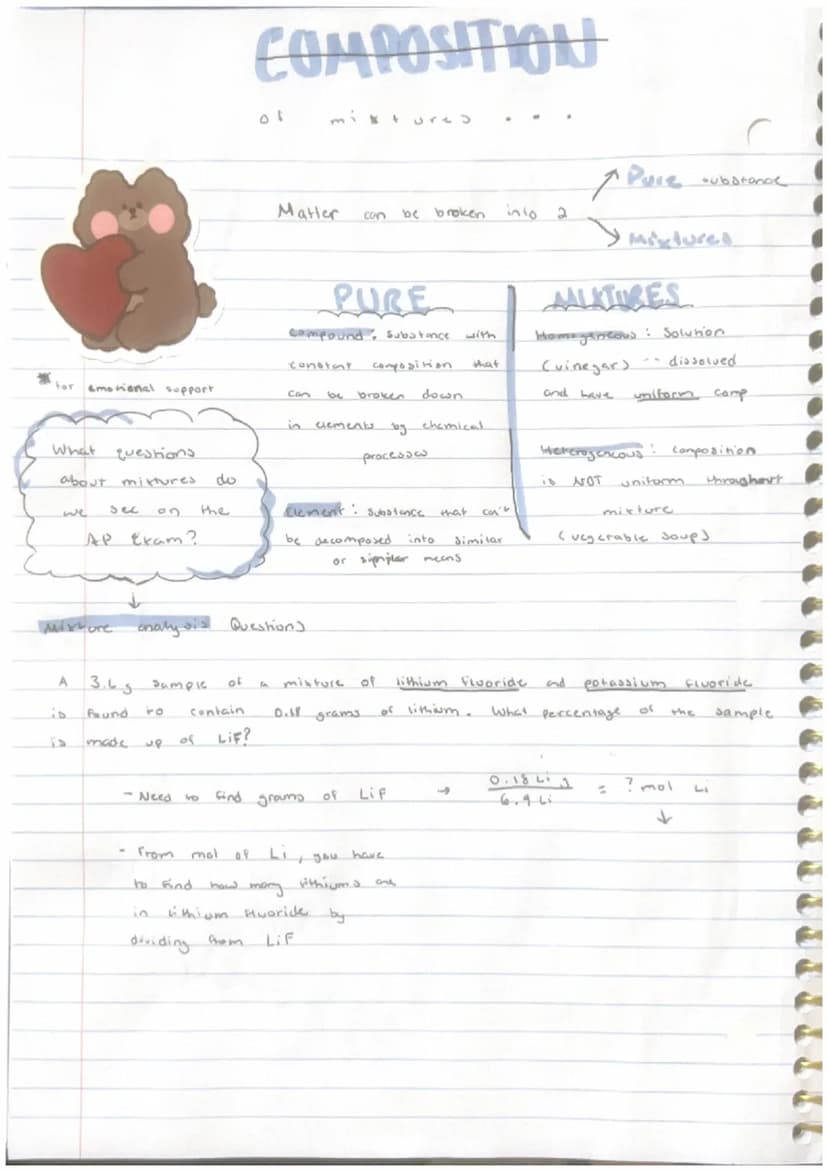 COMPOSITION
of mixtures . . .
Pure substance
Matter can be broken into 2
Mixtures
PURE
compound : substance with
constant composition that
can be broken down
in elements by chemical
processes
Element : substance that can't
be decomposed into similar
or simpler means
MIXTURES
Homogeneous : Solution
(vinegar) -- dissolved
and have uniform comp
Heterogeneous : composition
is NOT uniform throughout
mixture
(vegetable soup)
*for emotional support
What questions
about mixtures do
we see on the
AP Exam?
↓
Mixture analysis Questions
A 3.6 g sample of a mixture of lithium fluoride and potassium fluoride
is found to contain 0.18 grams of lithium. What percentage of the sample
is made up of LiF?
- Need to find grams of LiF → 0.18 Li g / 6.9 Li = ? mol Li
↓
- From mol of Li, you have
to find how many lithiums are
in lithium fluoride by
dividing from LiF